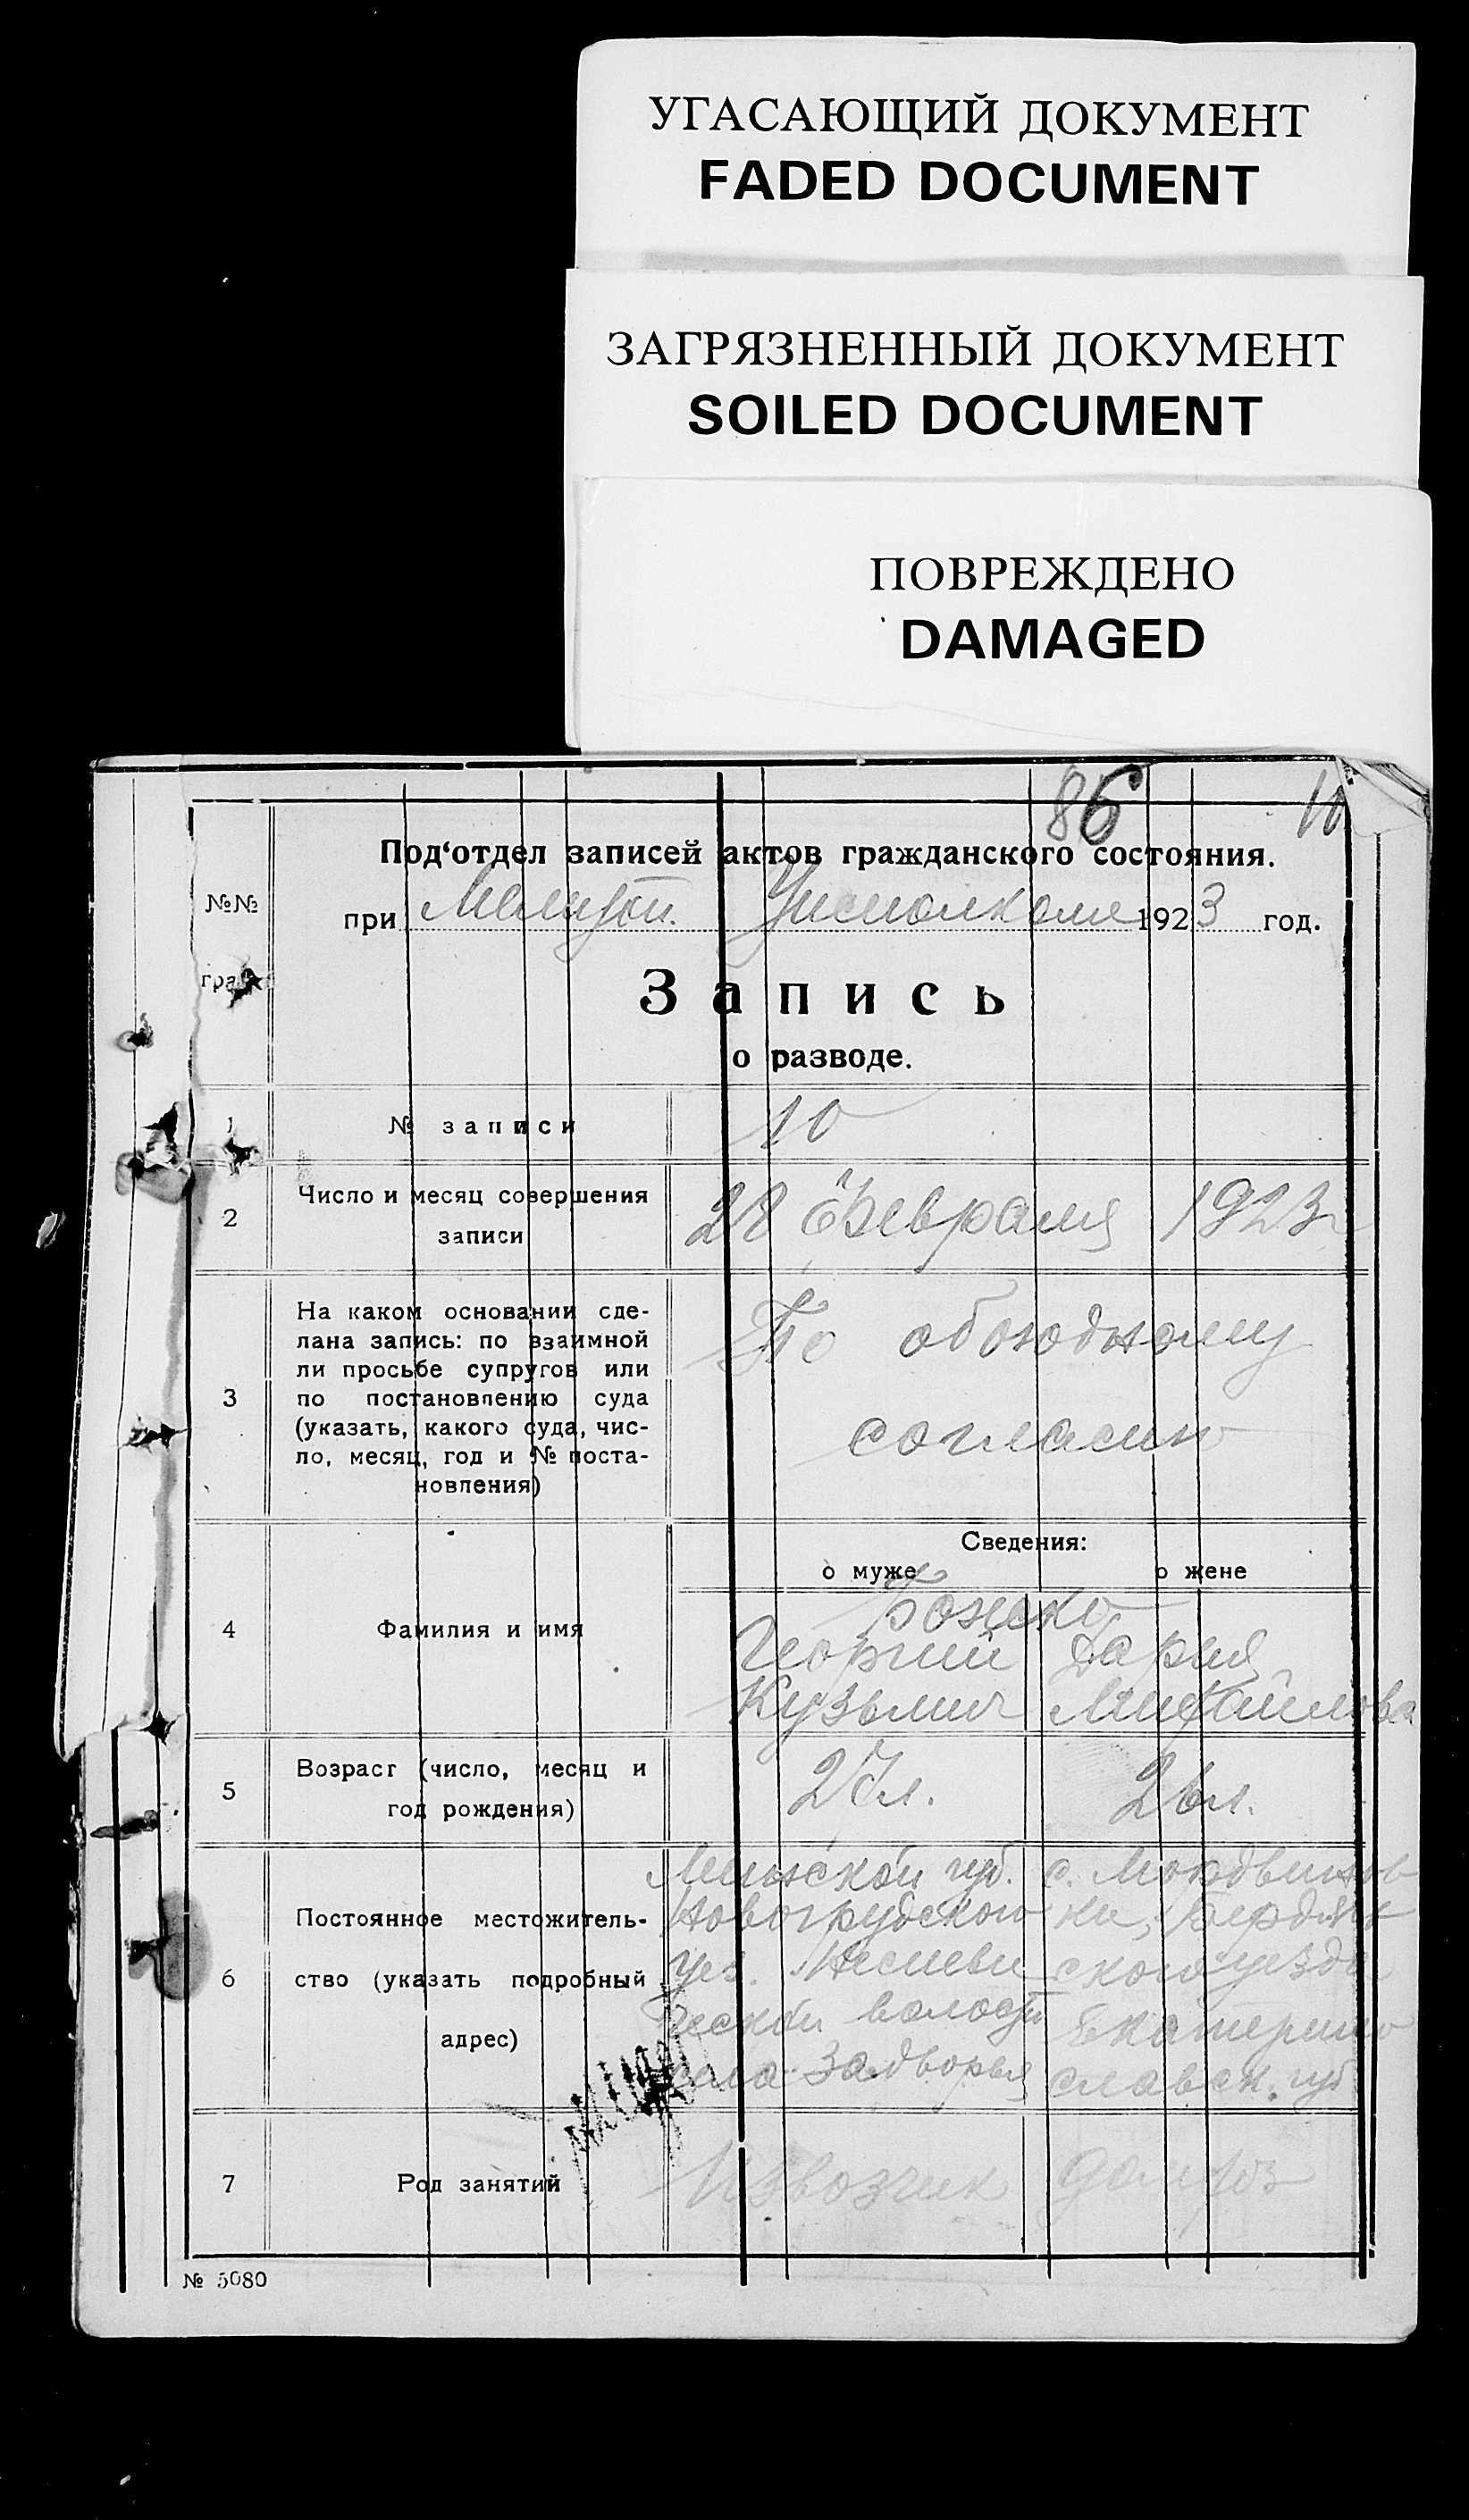 УГАСАЮЩИЙ ДОКУМЕНТ
FADED DOCUMENT
ЗАГРЯЗНЕННЫЙ ДОКУМЕНТ
SOILED DOCUMENT
ПОВРЕЖДЕНО
DAMAGED
86 10
Под‘отдел записей актов гражданского состояния.
№№
при Мелитоп. Уисполкоме 1923 год.
гра
Запись
о разводе.
1 № записи 10
2 Число и месяц совершения
записи
28 Февраля 1923 г
3 На каком основании сде-
лана запись: по взаимной
ли просьбе супругов или
по постановлению суда
(указать, какого суда, чис-
ло, месяц, год и № поста-
новления)
По обоюдному
согласию
Сведения:
о муже о жене
4 Фамилия и имя
Георгий
Кузьмич
Дария
Михайлова
5 Возраст (число, месяц и
год рождения)
27 л.
26 л.
6 Постоянное местожитель-
ство (указать подробный
адрес)
Минской губ.
Новогрудского
уез. Несвеи
ческой волости
села Задворья
с. Мордвинов
ки, Бердян
ского уезда
Екатерино
славск. губ.
7 Род занятий
Извозчик
домхоз
№ 5080